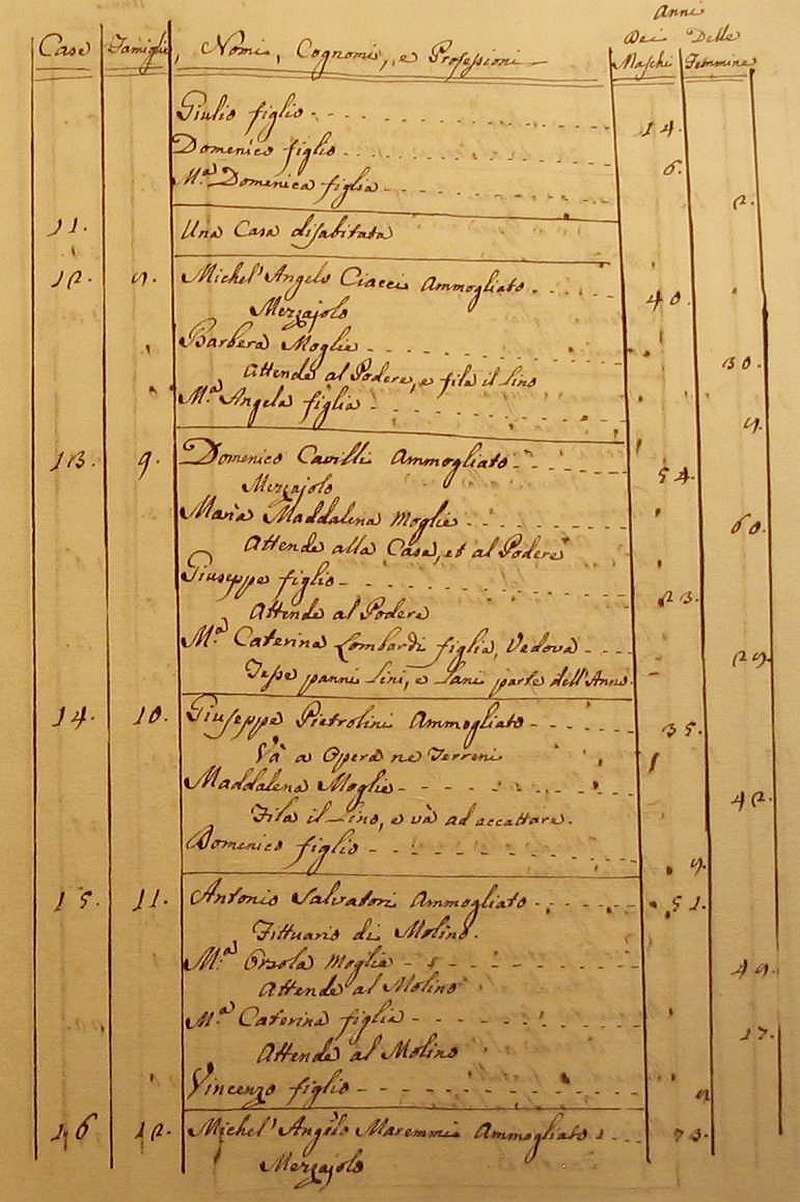 Anni
Case Famiglie, Nomi, Cognomi, e Professioni Dei Maschi Delle Femmine
Giulio figlio 14.
Domenico figlio 6.
M.a Domenica figlia 2.
11. Una Casa disabitata
12. Michel'Angelo Ciacci Ammogliato 40.
Mezzajolo
Barbera Moglie 30.
Attende al Podere, e fila il Lino
M.a Angela figlia
13. 9. Domenico Ammogliato 54.
Mezzajolo
Maria Maddalena Moglie 60.
Attende alla Casa, et al Podere
Giuseppe figlio 23.
Attende al Podere
M.a Caterina Lombardi figlia, Vedova
Tesse panni Lini, e Lani parte dell'Anno.
14. 10. Giuseppe Pietrolini Ammogliato 35.
Và a Opera ne Terreni
Maddalena Moglie 42.
Fila il Lino, e và ad accattare.
Domenico figlio
15. 11. Antonio Salvatori Ammogliato 51.
Fittuario di Molino.
M.a Orsola Moglie
Attende al Molino
M.a Caterina figlia 17.
Attende al Molino
Vincenzo figlio
16 12. Michel'Angelo Maremmi Ammogliato 73.
Mezzajolo